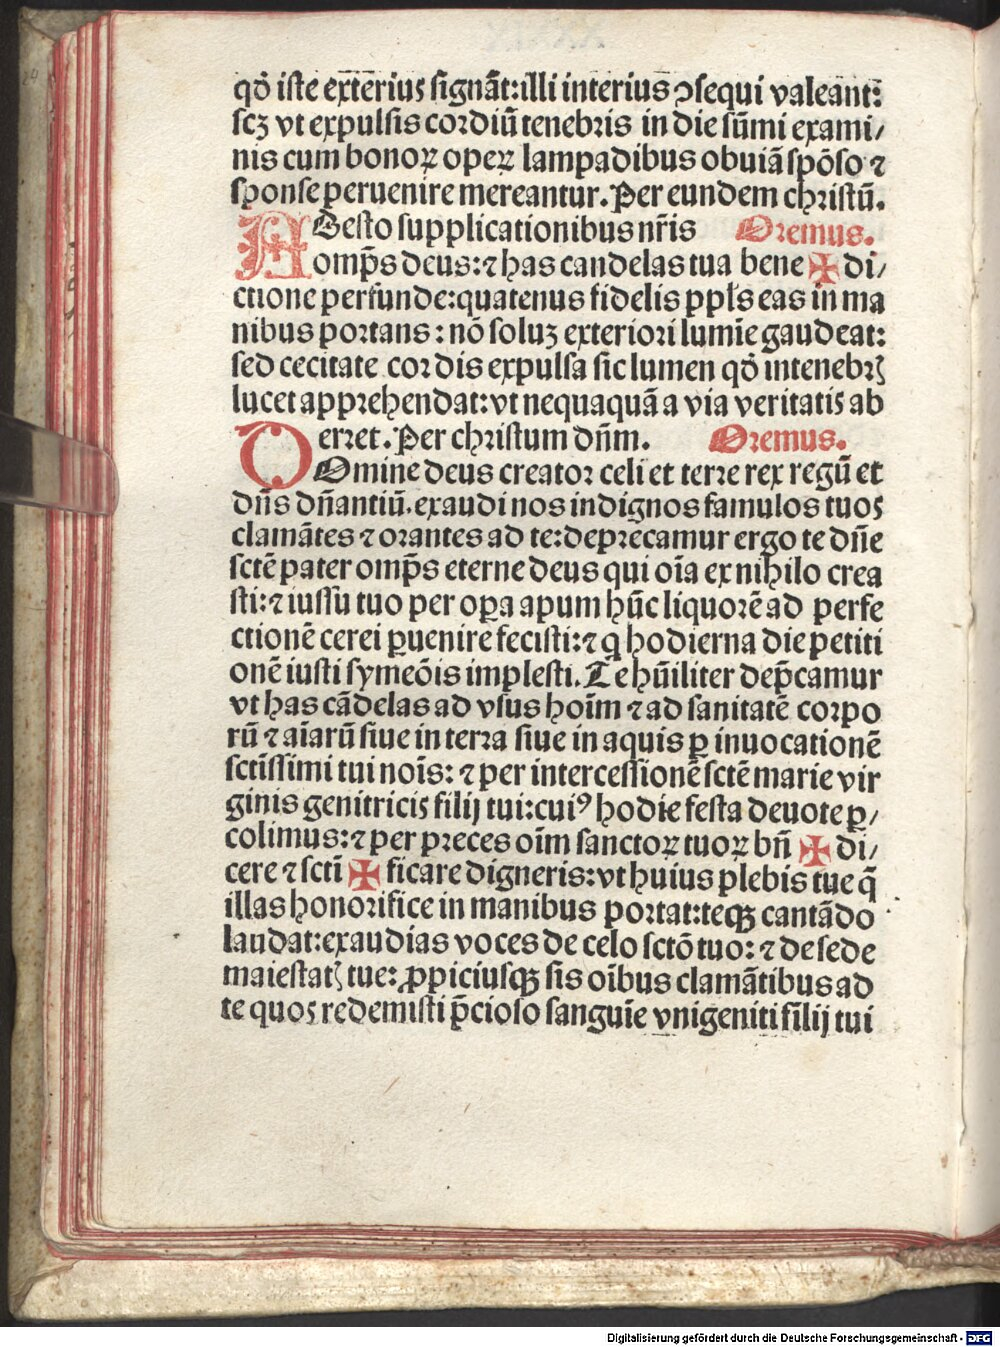 qđ iste exterius signāt: illi interius ꝯsequi valeant:
scꝫ vt expulsis cordiū tenebris in die sūmi exami/
nis cum bonoꝝ opeꝝ lampadibus obuiā spōso ⁊
sponse peruenire mereantur. Per eundem christū.
ADesto supplicationibus nr̄is Oremus.
omp̄s deus: ⁊ has candelas tua bene ✠ di/
ctione perfunde: quatenus fidelis ppl̄s eas in ma
nibus portans: nō soluꝫ exteriori lumīe gaudeat:
sed cecitate cordis expulsa sic lumen qđ in tenebrꝭ
lucet apprehendat: vt nequaquā a via veritatis ab
erret. Per christum dn̄m. Oremus.
DOmine deus creator celi et terre rex regū et
dn̄s dn̄antiū. exaudi nos indignos famulos tuos
clamātes ⁊ orantes ad te: deprecamur ergo te dn̄e
sctē pater omp̄s eterne deus qui oīa ex nihilo crea
sti: ⁊ iussu tuo per oꝑa apum hūc liquorē ad perfe
ctionē cerei ꝑuenire fecisti: ⁊ q̄ hodierna die petiti
onē iusti symeōis implesti. Te hūiliter dep̄camur
vt has cādelas ad vsus hoīm ⁊ ad sanitatē corpo
rū ⁊ aīarū siue in terra siue in aquis ꝑ inuocationē
sctīssimi tui noīs: ⁊ per intercessionē sctē marie vir
ginis genitricis filij tui: cuiꝰ hodie festa deuote ꝑ/
colimus: ⁊ per preces oīm sanctoꝝ tuoꝝ bn̄ ✠ di/
cere ⁊ sctī ✠ ficare digneris: vt huius plebis tue q̄
illas honorifice in manibus portat: teqꝫ cantādo
laudat: exaudias voces de celo sctō tuo: ⁊ de sede
maiestatꝭ tue: ꝓpiciusqꝫ sis oībus clamātibus ad
te quos redemisti p̄cioso sanguīe vnigeniti filij tui
Digitalisierung gefördert durch die Deutsche Forschungsgemeinschaft - DFG